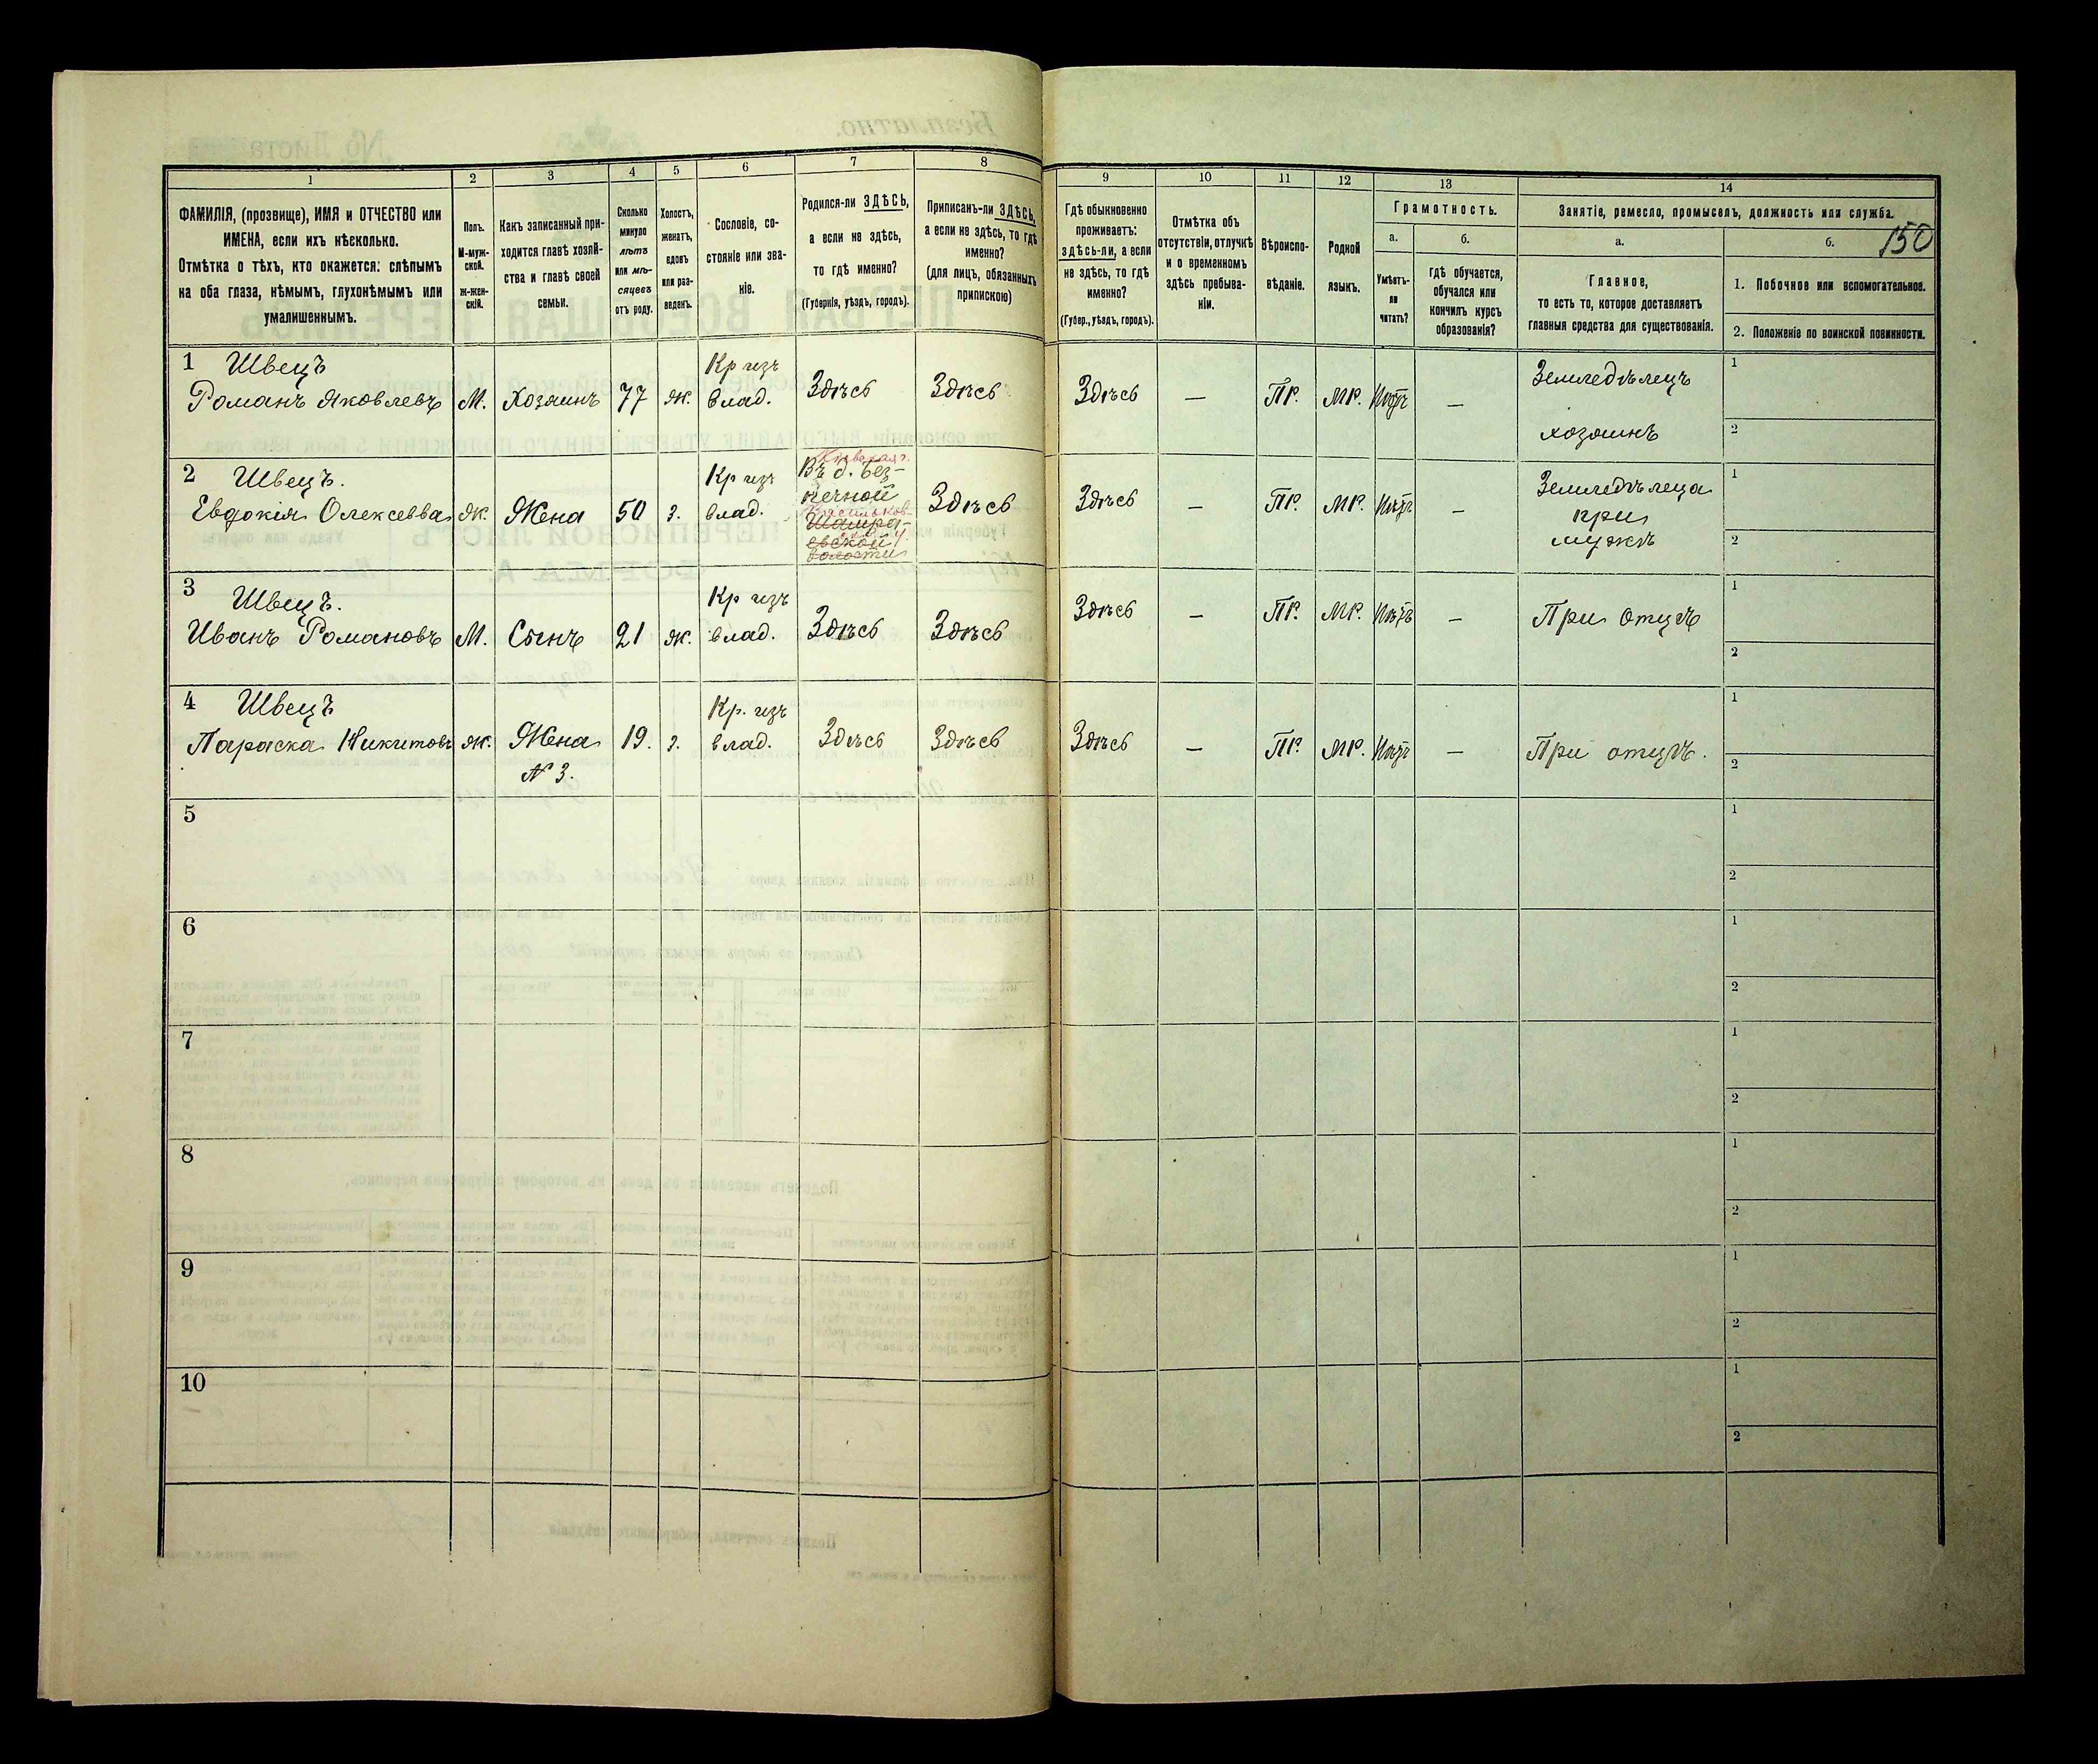 150
1
2
3
4
5
6
7
8
9
10
11
12
13
14
ФАМИЛІЯ, (прозвище), ИМЯ и ОТЧЕСТВО или
ИМЕНА, если ихъ нѣсколько.
Отмѣтка о тѣхъ, кто окажется: слѣпымъ
на оба глаза, нѣмымъ, глухонѣмымъ или
умалишеннымъ.
Полъ.
М-муж-
ской.
ж-жен-
скій.
Какъ записанный при-
ходится главѣ хозяй-
ства и главѣ своей
семьи.
Сколько
минуло
лѣтъ
или мѣ-
сяцевъ
отъ роду.
Холостъ,
женатъ,
вдовъ
или раз-
веденъ.
Сословіе, со-
стояніе или зва-
ніе.
Родился-ли ЗДѢСЬ,
а если не здѣсь,
то гдѣ именно?
(Губернія, уѣздъ, городъ).
Приписанъ-ли ЗДѢСЬ,
а если не здѣсь, то гдѣ
именно?
(для лицъ, обязанныхъ
припискою)
Гдѣ обыкновенно
проживаетъ:
здѣсь-ли, а если
не здѣсь, то гдѣ
именно?
(Губер., уѣздъ, городъ).
Отмѣтка объ
отсутствіи, отлучкѣ
и о временномъ
здѣсь пребыва-
ніи.
Вѣроиспо-
вѣданіе.
Родной
языкъ.
Грамотность.
а.
Умѣетъ-
ли
читать?
б.
гдѣ обучается,
обучался или
кончилъ курсъ
образованія?
Занятіе, ремесло, промыселъ, должность или служба.
а.
Главное,
то есть то, которое доставляетъ
главныя средства для существованія.
б.
1. Побочное или вспомогательное.
2. Положеніе по воинской повинности.
1 Швецъ
Романъ Яковлевъ
М.
Хозяинъ
77
ж.
Кр изъ
влад.
Здѣсь
Здѣсь
Здѣсь
—
ПР.
МР.
Нѣтъ
—
Земледѣлецъ
хозяинъ
1
2
2 Швецъ.
Евдокія Олексевва
Ж.
Жена
50
з.
Кр изъ
влад.
Кіевская г.
Въ д. Без-
печной
Шамра-
евской
волости
Здѣсь
Здѣсь
—
ПР.
МР.
Нѣтъ
—
Земледѣлеца
при
мужѣ
1
2
3 Швецъ.
Иванъ Романовъ
М.
Сынъ
21
ж.
Кр изъ
влад.
Здѣсь
Здѣсь
Здѣсь
—
ПР.
МР.
Нѣтъ
—
При отцѣ
1
2
4 Швецъ
Параска Никитовъ
Ж.
Жена
№ 3.
19.
з.
Кр. изъ
влад.
Здѣсь
Здѣсь
Здѣсь
—
ПР.
МР.
Нѣтъ
—
При отцѣ.
1
2
5
1
2
6
1
2
7
1
2
8
1
2
9
1
2
10
1
2